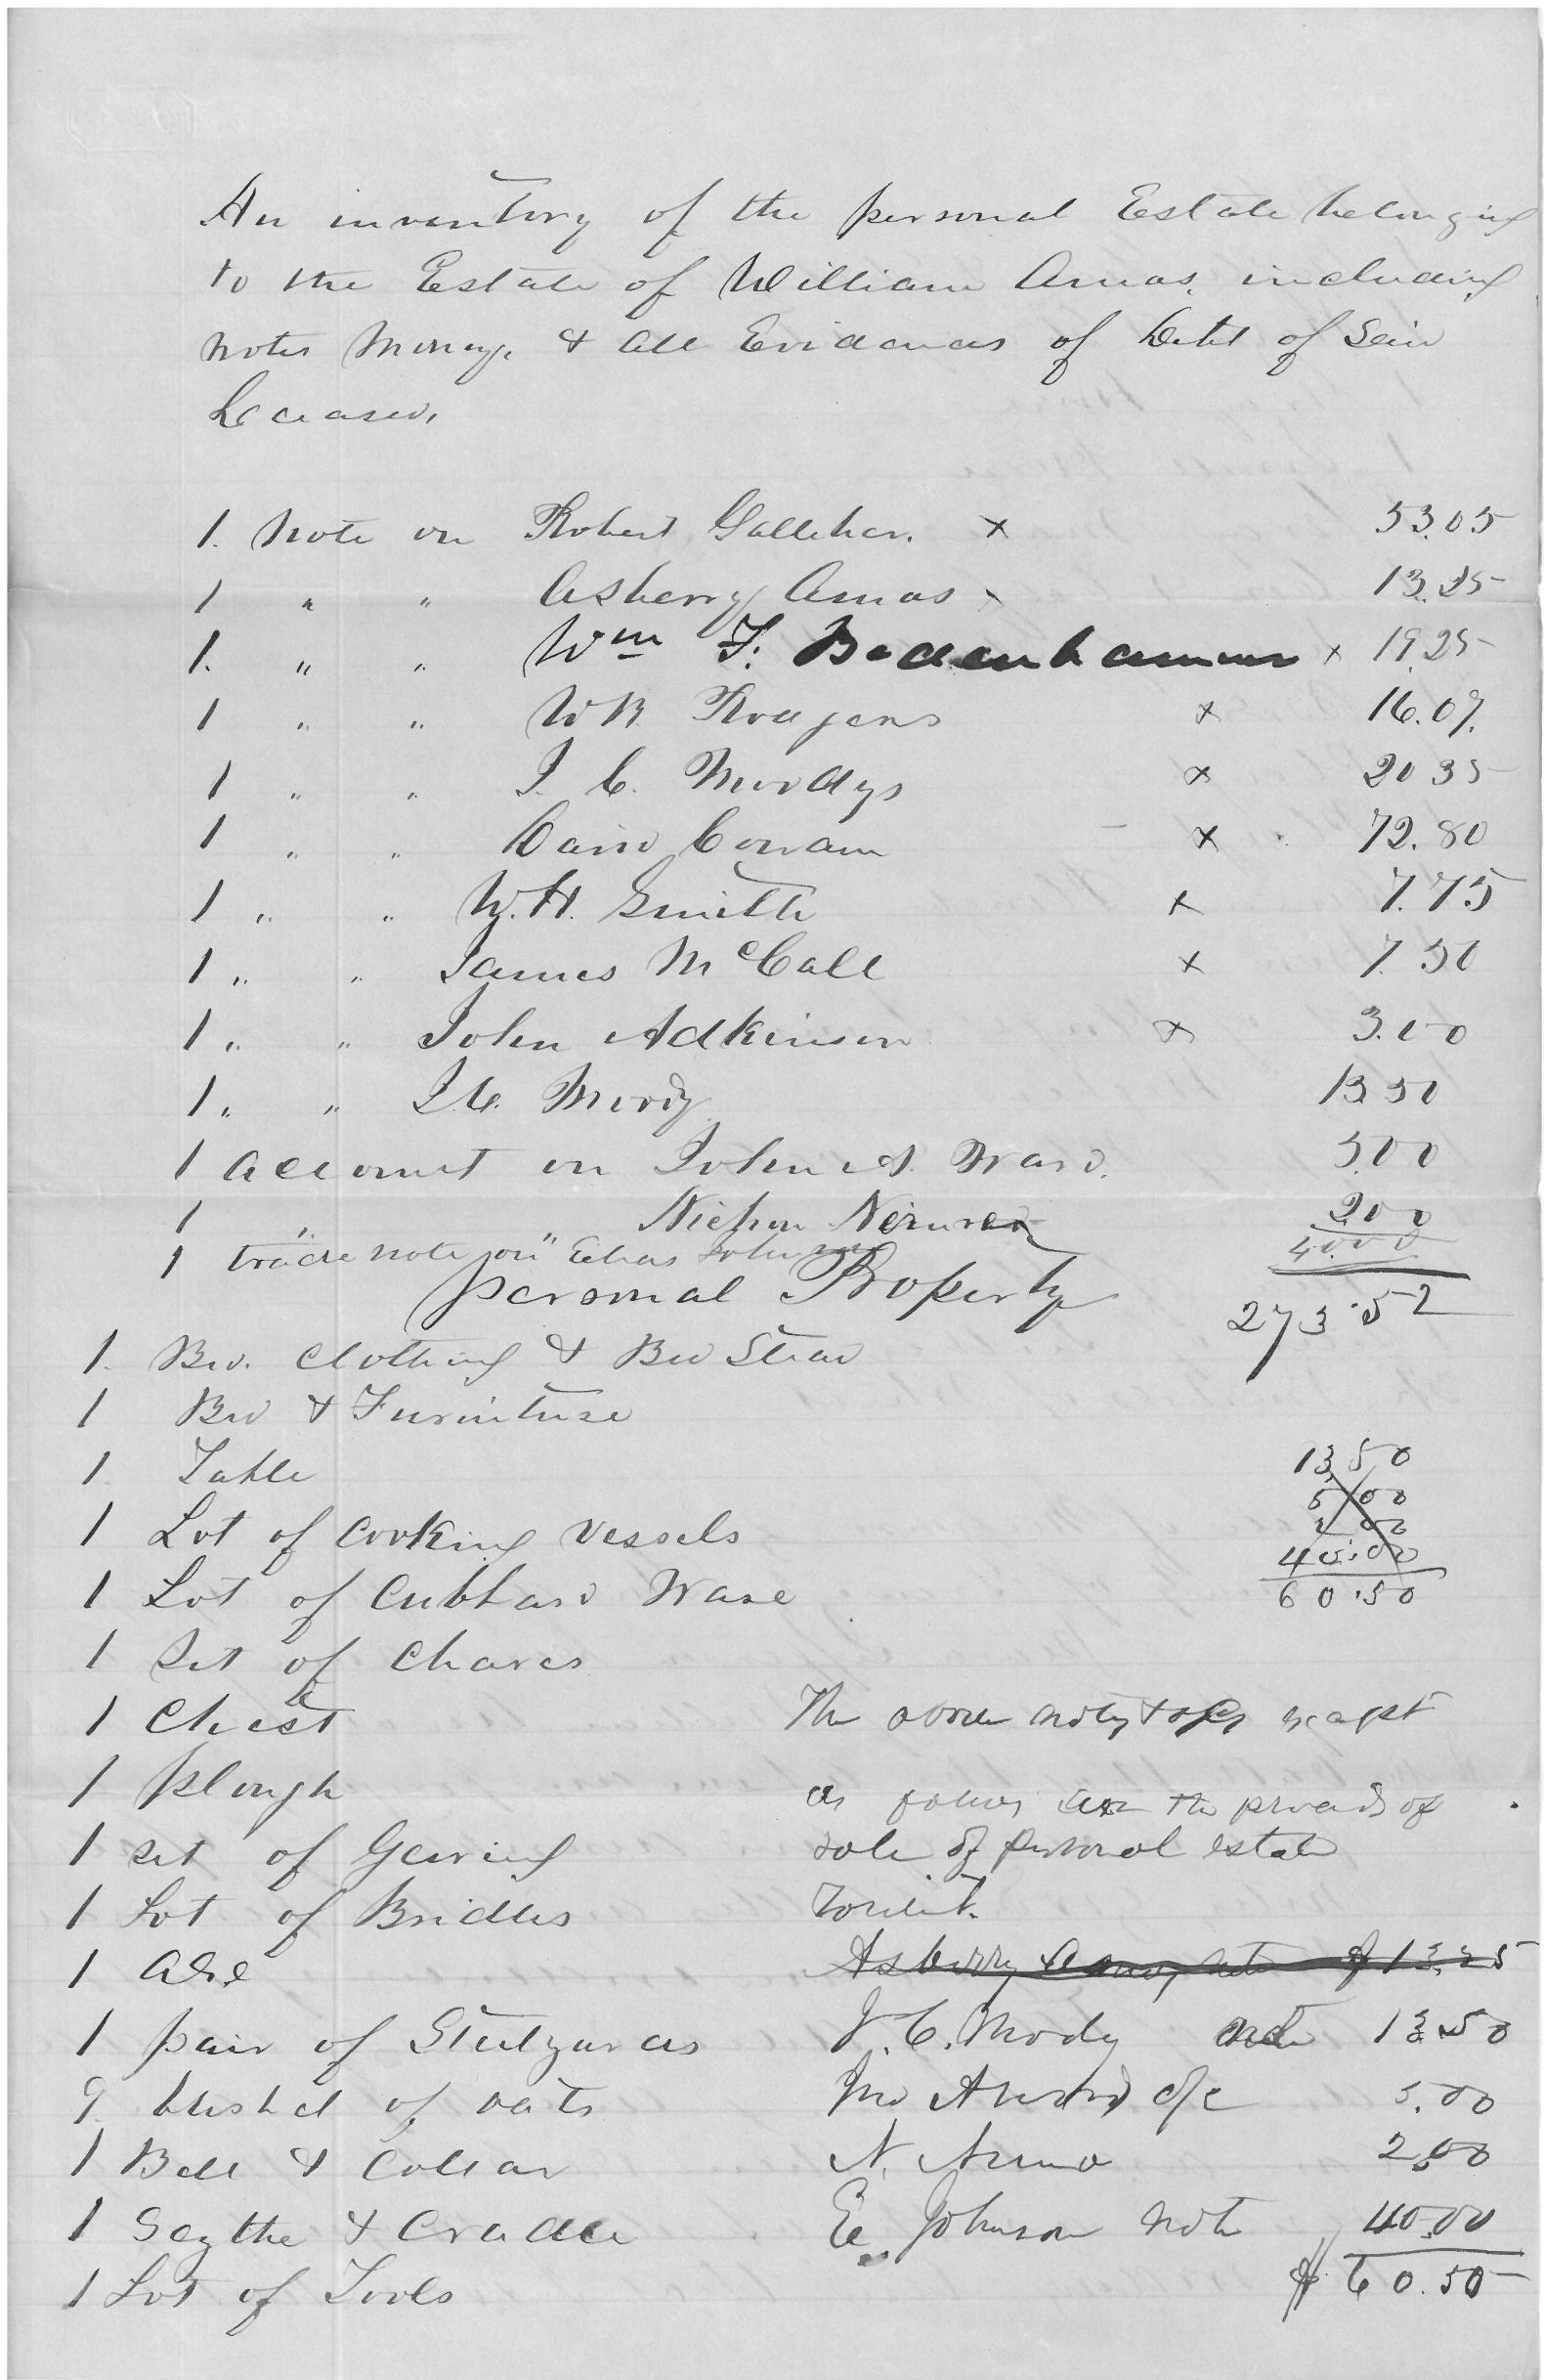 An inventory of the personal Estate belonging
to the Estate of William Amos, including
notes money, & all Evidences of Debt of Said
Deceased,
1. note on Robert Galleher. x 53.05
1 " " Asberry Amos x 13.25
1. " " Wm F. Bodenhammer x 19.25
1 " " W B Rodgers x 16.07.
1 " " J. C. Moodys x 20 35
1 " " David Cowan x 72.80
1 " " W. H. Smith x 7.75
1 " " James McCall x 7.50
1 " " John Adkinson x 3.00
1 " " J. C. Moody 13 50
1 account on John A. Ward. 5.00
1 " " 2.00
1 trade note on Elias Johnson 40.00
personal Property 273.52
1. Bed. Clothing & Bed Stead
1 Bed & Furniture
1. Table 13,50
1 Lot of Cooking vessels 5 00
2 00
40.00
1 Lot of Cubbard Ware 60.50
1 Set of Chares
1 Chest The above notes & a/cs except
1 plough as follows are the proceeds of
1 set of Gearing sale of personal estate
1 Lot of Bridles to wit.
1 axe Asberry Amos note of 13.25
1 pair of Steelyards J. C. Mody note 13.50
9. bushel of oats Jno A Ward a/c 5.00
1 Bell & Collar N. 2.00
1 Scythe & Cradle E. Johnson note 40.00
1 Lot of Tools $ 60.50